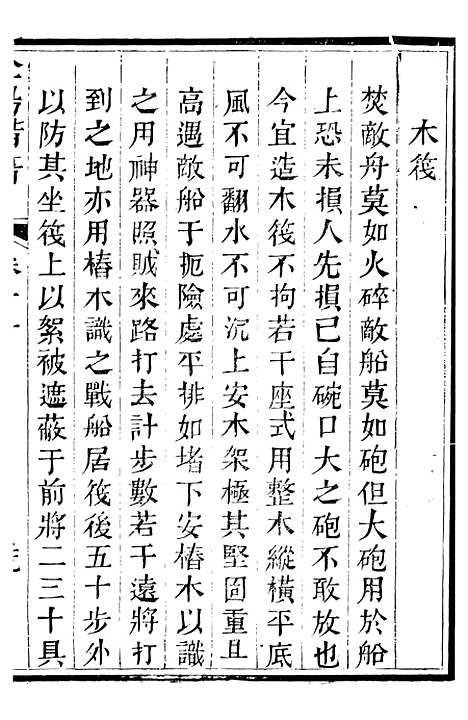 木筏
焚敵舟莫如火碎敵船莫如砲但大砲用於船
上恐未損人先損已自碗口大之砲不敢放也
今宜造木筏不拘若干座式用整木縱橫平底
風不可翻水不可沉上安木架極其堅固重且
高遇敵船于扼險處平排如堵下安樁木以識
之用神器照賊來路打去計步數若干遠將打
到之地亦用樁木識之戰船居筏後五十步外
以防其坐筏上以絮被遮蔽于前將二三十具
卷十一